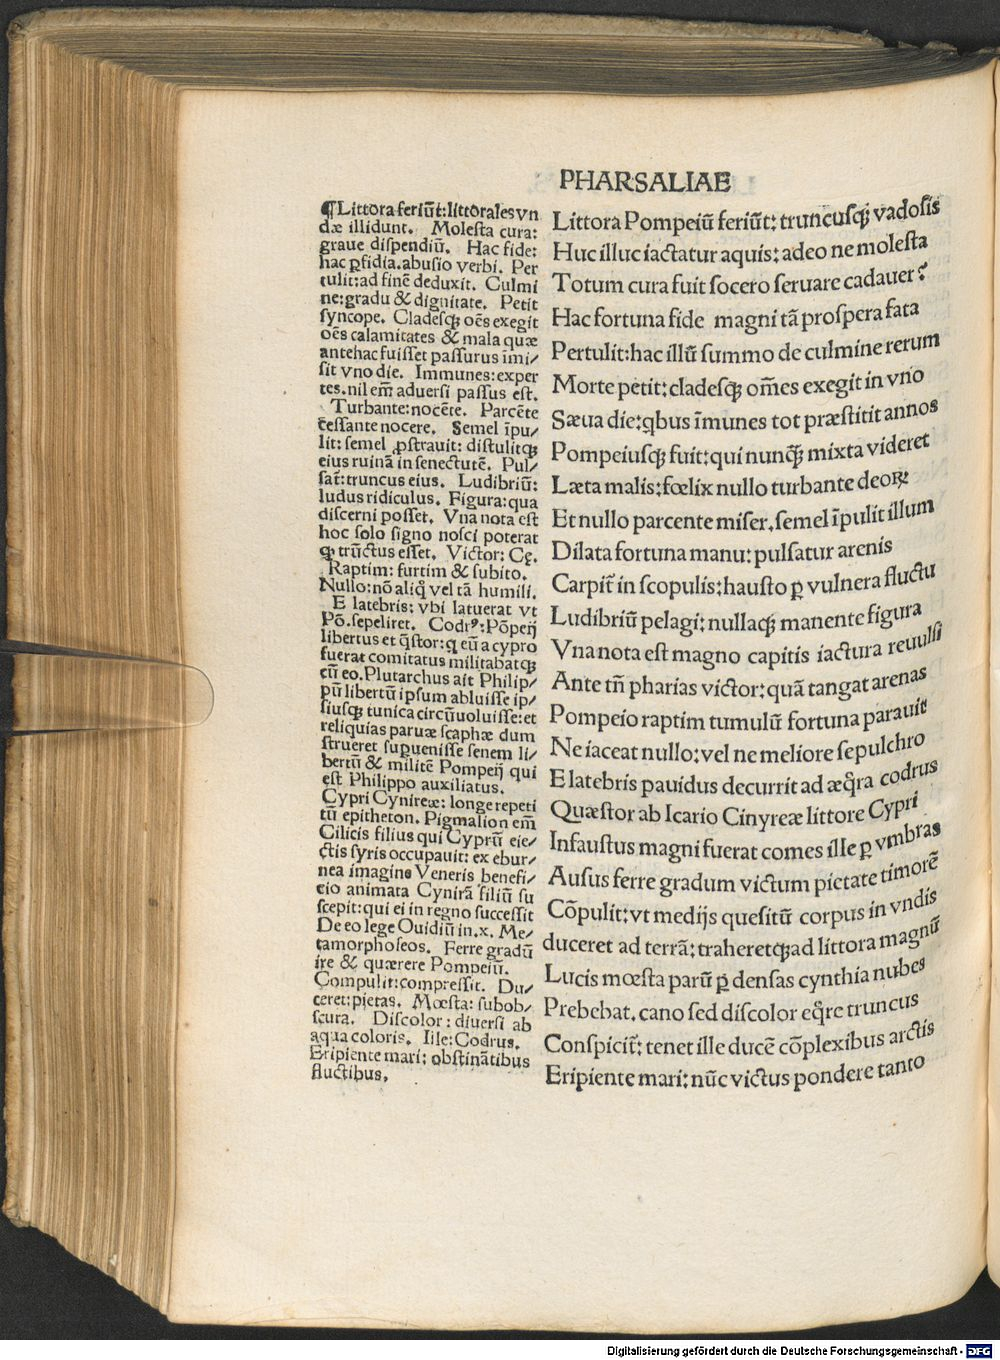 PHARSALIAE
¶Littora feriūt: littorales vn
dæ illidunt. Molesta cura:
graue dispendiū. Hac fide:
hac ꝑfidia. abusio verbi. Per
tulit: ad finē deduxit. Culmi
ne: gradu & dignitate. Petit
syncope. Cladesqꝫ oēs exegit
oēs calamitates & mala quæ
antehac fuisset passurus imi/
sit vno die. Immunes: exper
tes. nil em̄ aduersi passus est.
Turbante: nocēte. Parcēte
cessante nocere. Semel īpu/
lit: semel ꝓstrauit: distulitqꝫ
eius ruinā in senectutē. Pul/
sat̄: truncus eius. Ludibriū:
ludus ridiculus. Figura: qua
discerni posset. Vna nota est
hoc solo signo nosci poterat
qꝫ trūctus esset. Victor: Cę.
Raptim: furtim & subito.
Nullo: nō aliq̊ vel tā humili.
E latebris: vbi latuerat vt
Pō. sepeliret. Codrꝰ: Pōpeij
libertus et q̄stor: q eū a cypro
fuerat comitatus militabatqꝫ
cū eo. Plutarchus ait Philip/
pū libertū ipsum abluisse ip/
siusqꝫ tunica circūuoluisse: et
reliquias paruæ scaphæ dum
strueret suꝑuenisse senem li/
bertū & militē Pompeij qui
est Philippo auxiliatus.
Cypri Cynireæ: longe repeti
tū epitheton. Pigmalion em̄
Cilicis filius qui Cyprū eie/
ctis syris occupauit: ex ebur/
nea imagine Veneris benefi/
cio animata Cynirā filiū su
scepit: qui ei in regno successit
De eo lege Ouidiū in .x. Me/
tamorphoseos. Ferre gradū
ire & quærere Pompeiū.
Compulit: compressit. Du/
ceret: pietas. Mœsta: subob/
scura. Discolor: diuersi ab
aqua coloris. Iile: Codrus.
Eripiente mari: obstinātibus
fluctibus.
Littora Pompeiū feriūt: truncusqꝫ vadosis
Huc illuc iactatur aquis: adeo ne molesta
Totum cura fuit socero seruare cadauer?
Hac fortuna fide magni tā prospera fata
Pertulit: hac illū summo de culmine rerum
Morte petit: cladesqꝫ om̄es exegit in vno
Sæua die: qbus īmunes tot præstitit annos
Pompeiusqꝫ fuit: qui nunqꝫ mixta videret
Læta malis: fœlix nullo turbante deoꝝ:
Et nullo parcente miser. semel īpulit illum
Dilata fortuna manu: pulsatur arenis
Carpit̄ in scopulis: hausto ꝑ vulnera fluctu
Ludibriū pelagi: nullaqꝫ manente figura
Vna nota est magno capitis iactura reuulsi
Ante tn̄ pharias victor: quā tangat arenas
Pompeio raptim tumulū fortuna parauit
Ne iaceat nullo: vel ne meliore sepulchro
E latebris pauidus decurrit ad æq̊ra codrus
Quæstor ab Icario Cinyreæ littore Cypri
Infaustus magni fuerat comes ille ꝑ vmbras
Ausus ferre gradum victum pietate timorē
Cōpulit: vt medijs quesitū corpus in vndis
duceret ad terrā: traheretqꝫ ad littora magnū
Lucis mœsta parū ꝑ densas cynthia nubes
Prebebat. cano sed discolor eq̊re truncus
Conspicit̄: tenet ille ducē cōplexibus arctis
Eripiente mari: nūc victus pondere tanto
Digitalisierung gefördert durch die Deutsche Forschungsgemeinschaft - DFG